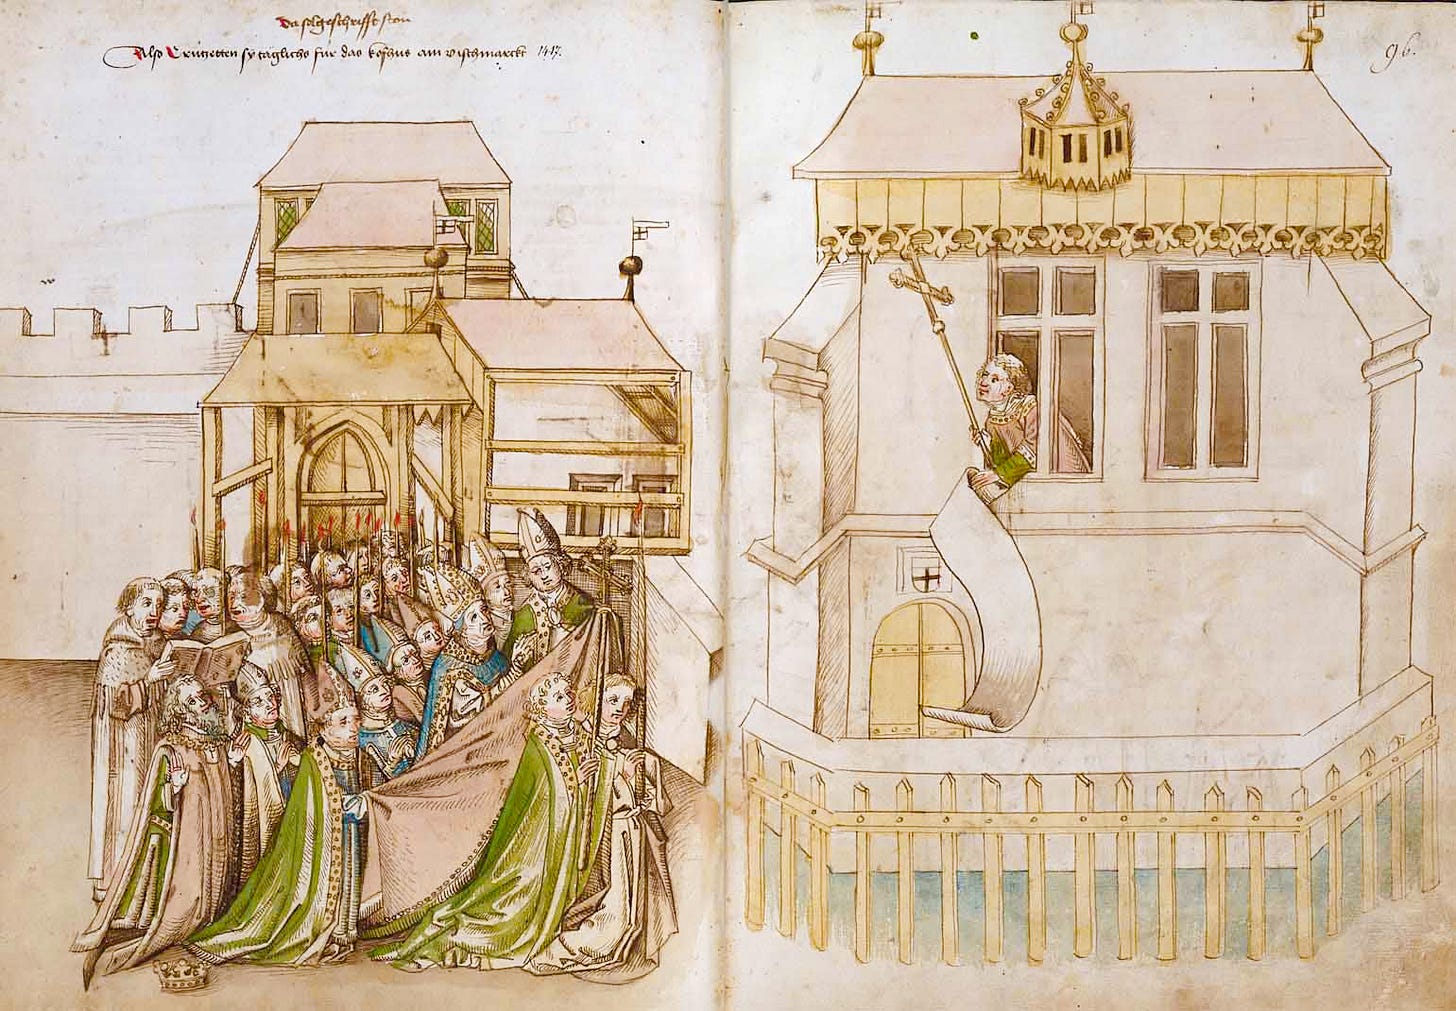 da sol geschrifft ston
Also Crützetten sy täglichs für das kofhus am vischmarckt 1417.
96.